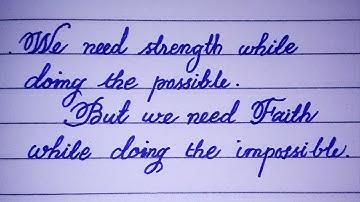 We need strength while
doing the possible.
But we need Faith
while doing the impossible.